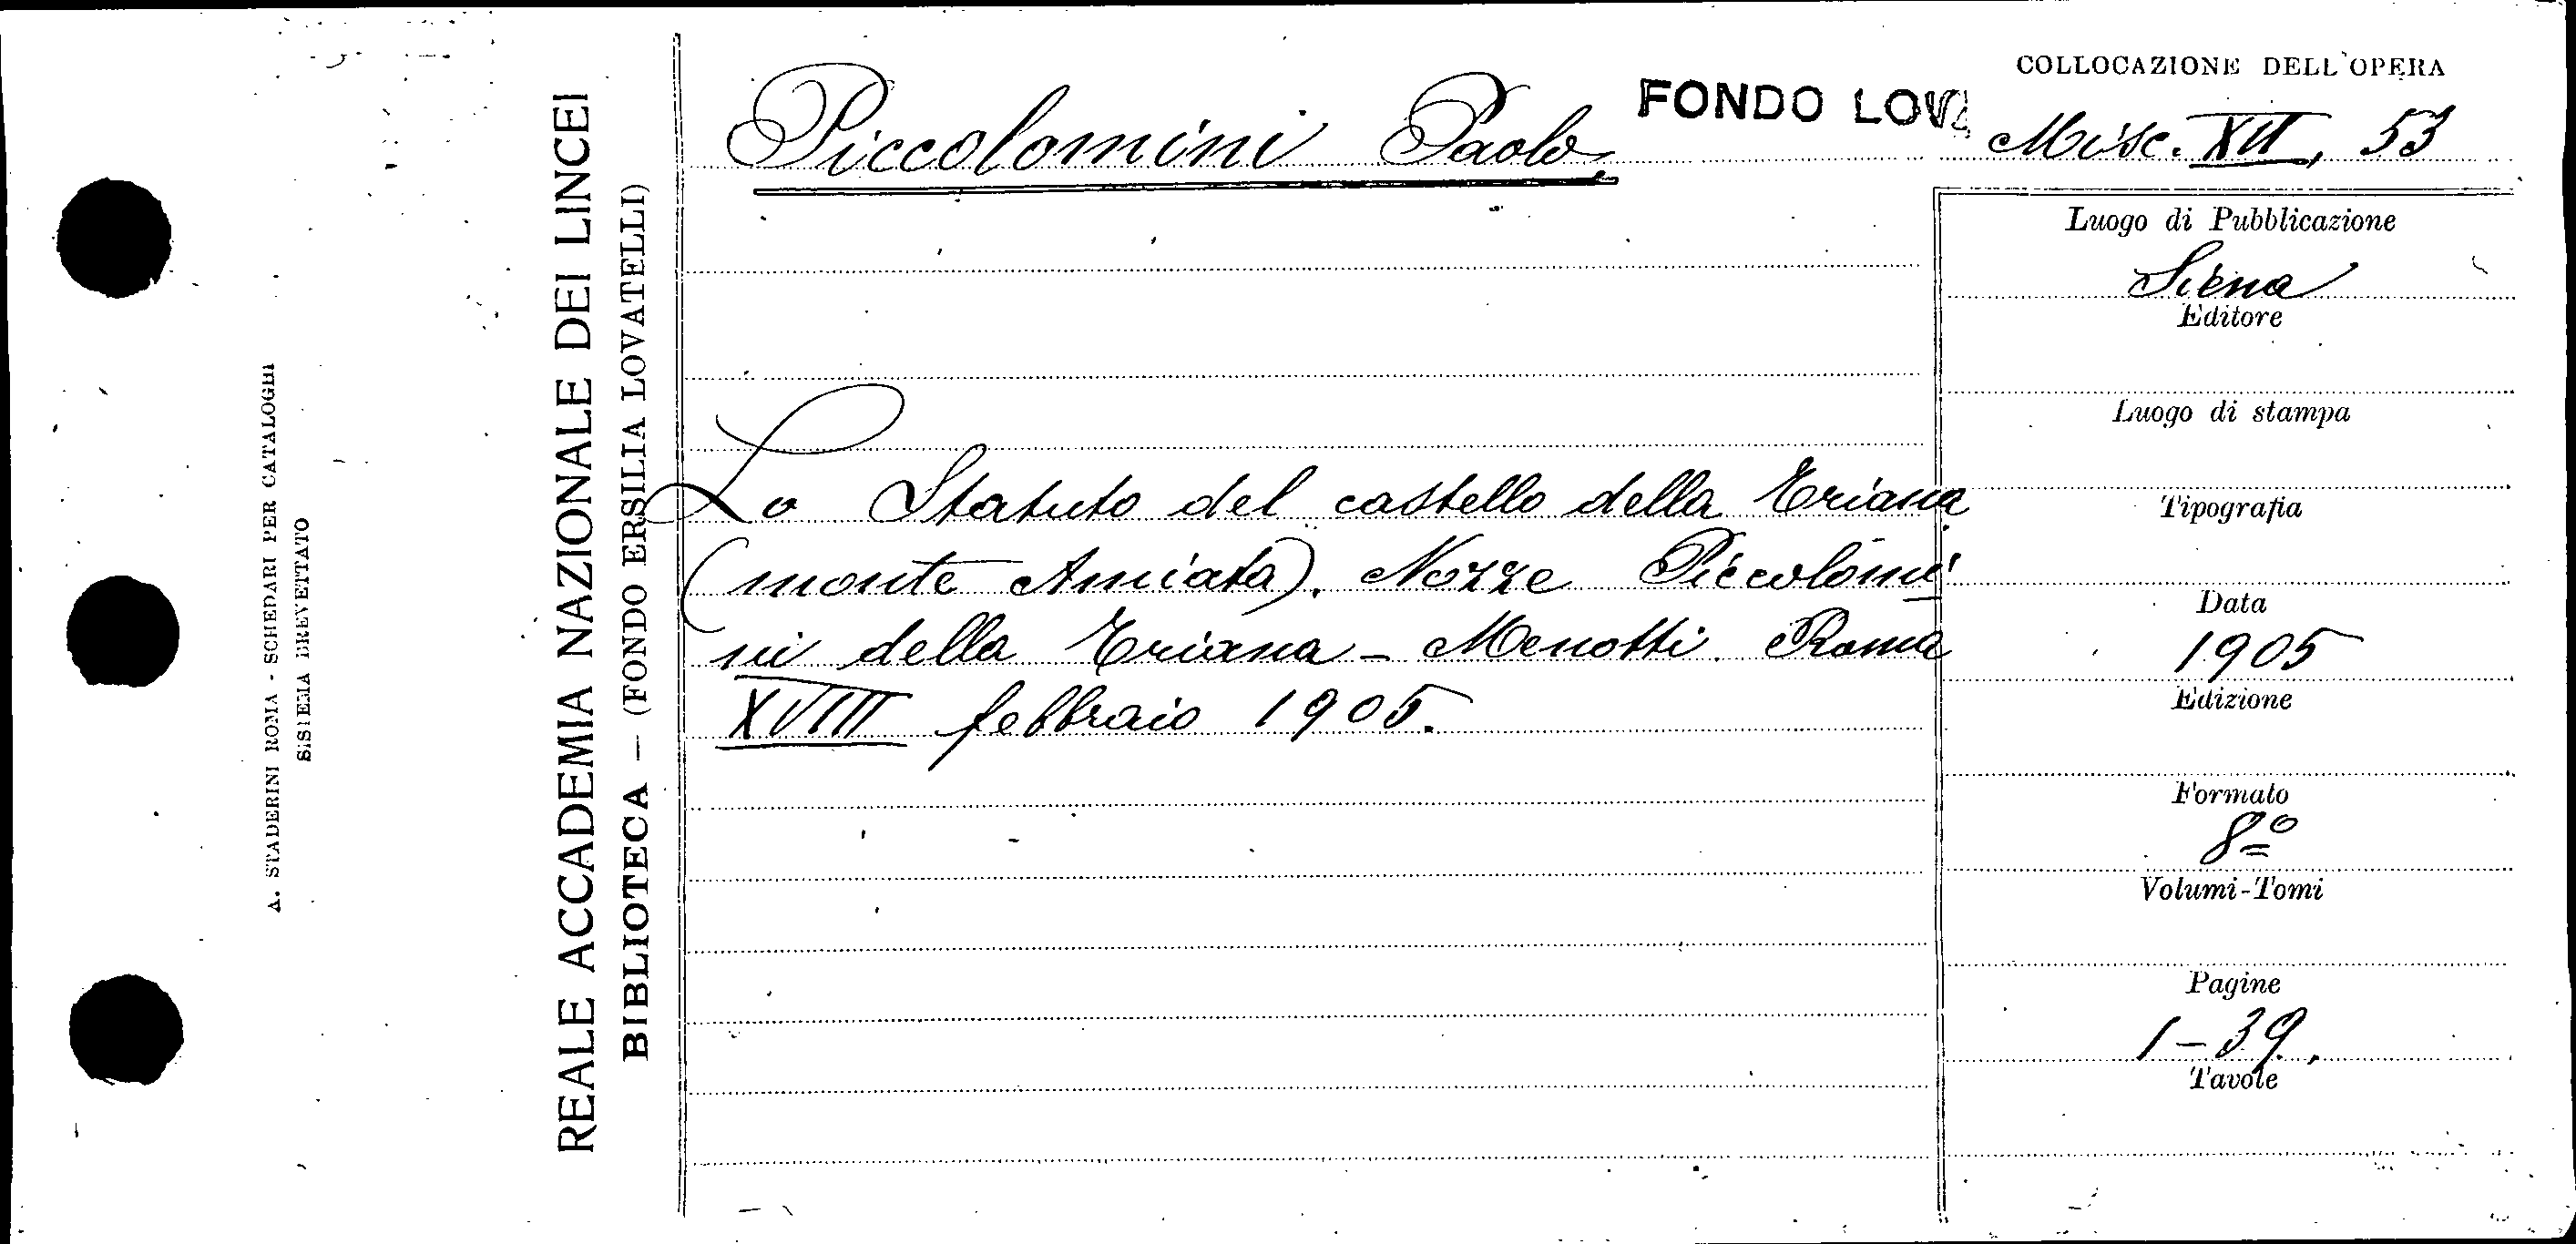 A. STADERINI ROMA - SCHEDARI PER CATALOGHI
SISTEMA BREVETTATO
REALE ACCADEMIA NAZIONALE DEI LINCEI
BIBLIOTECA — (FONDO ERSILIA LOVATELLI)
Piccolomini Paolo
FONDO LOVA
COLLOCAZIONE DELL'OPERA
Misc. XII, 53
Lo Statuto del castello della Triana
(monte Amiata). Nozze Piccolomi
ni della Triana - Menotti. Roma
XVIII febbraio 1905.
Luogo di Pubblicazione
Siena
Editore
Luogo di stampa
Tipografia
Data
1905
Edizione
Formato
8º
Volumi-Tomi
Pagine
1-39.
Tavole